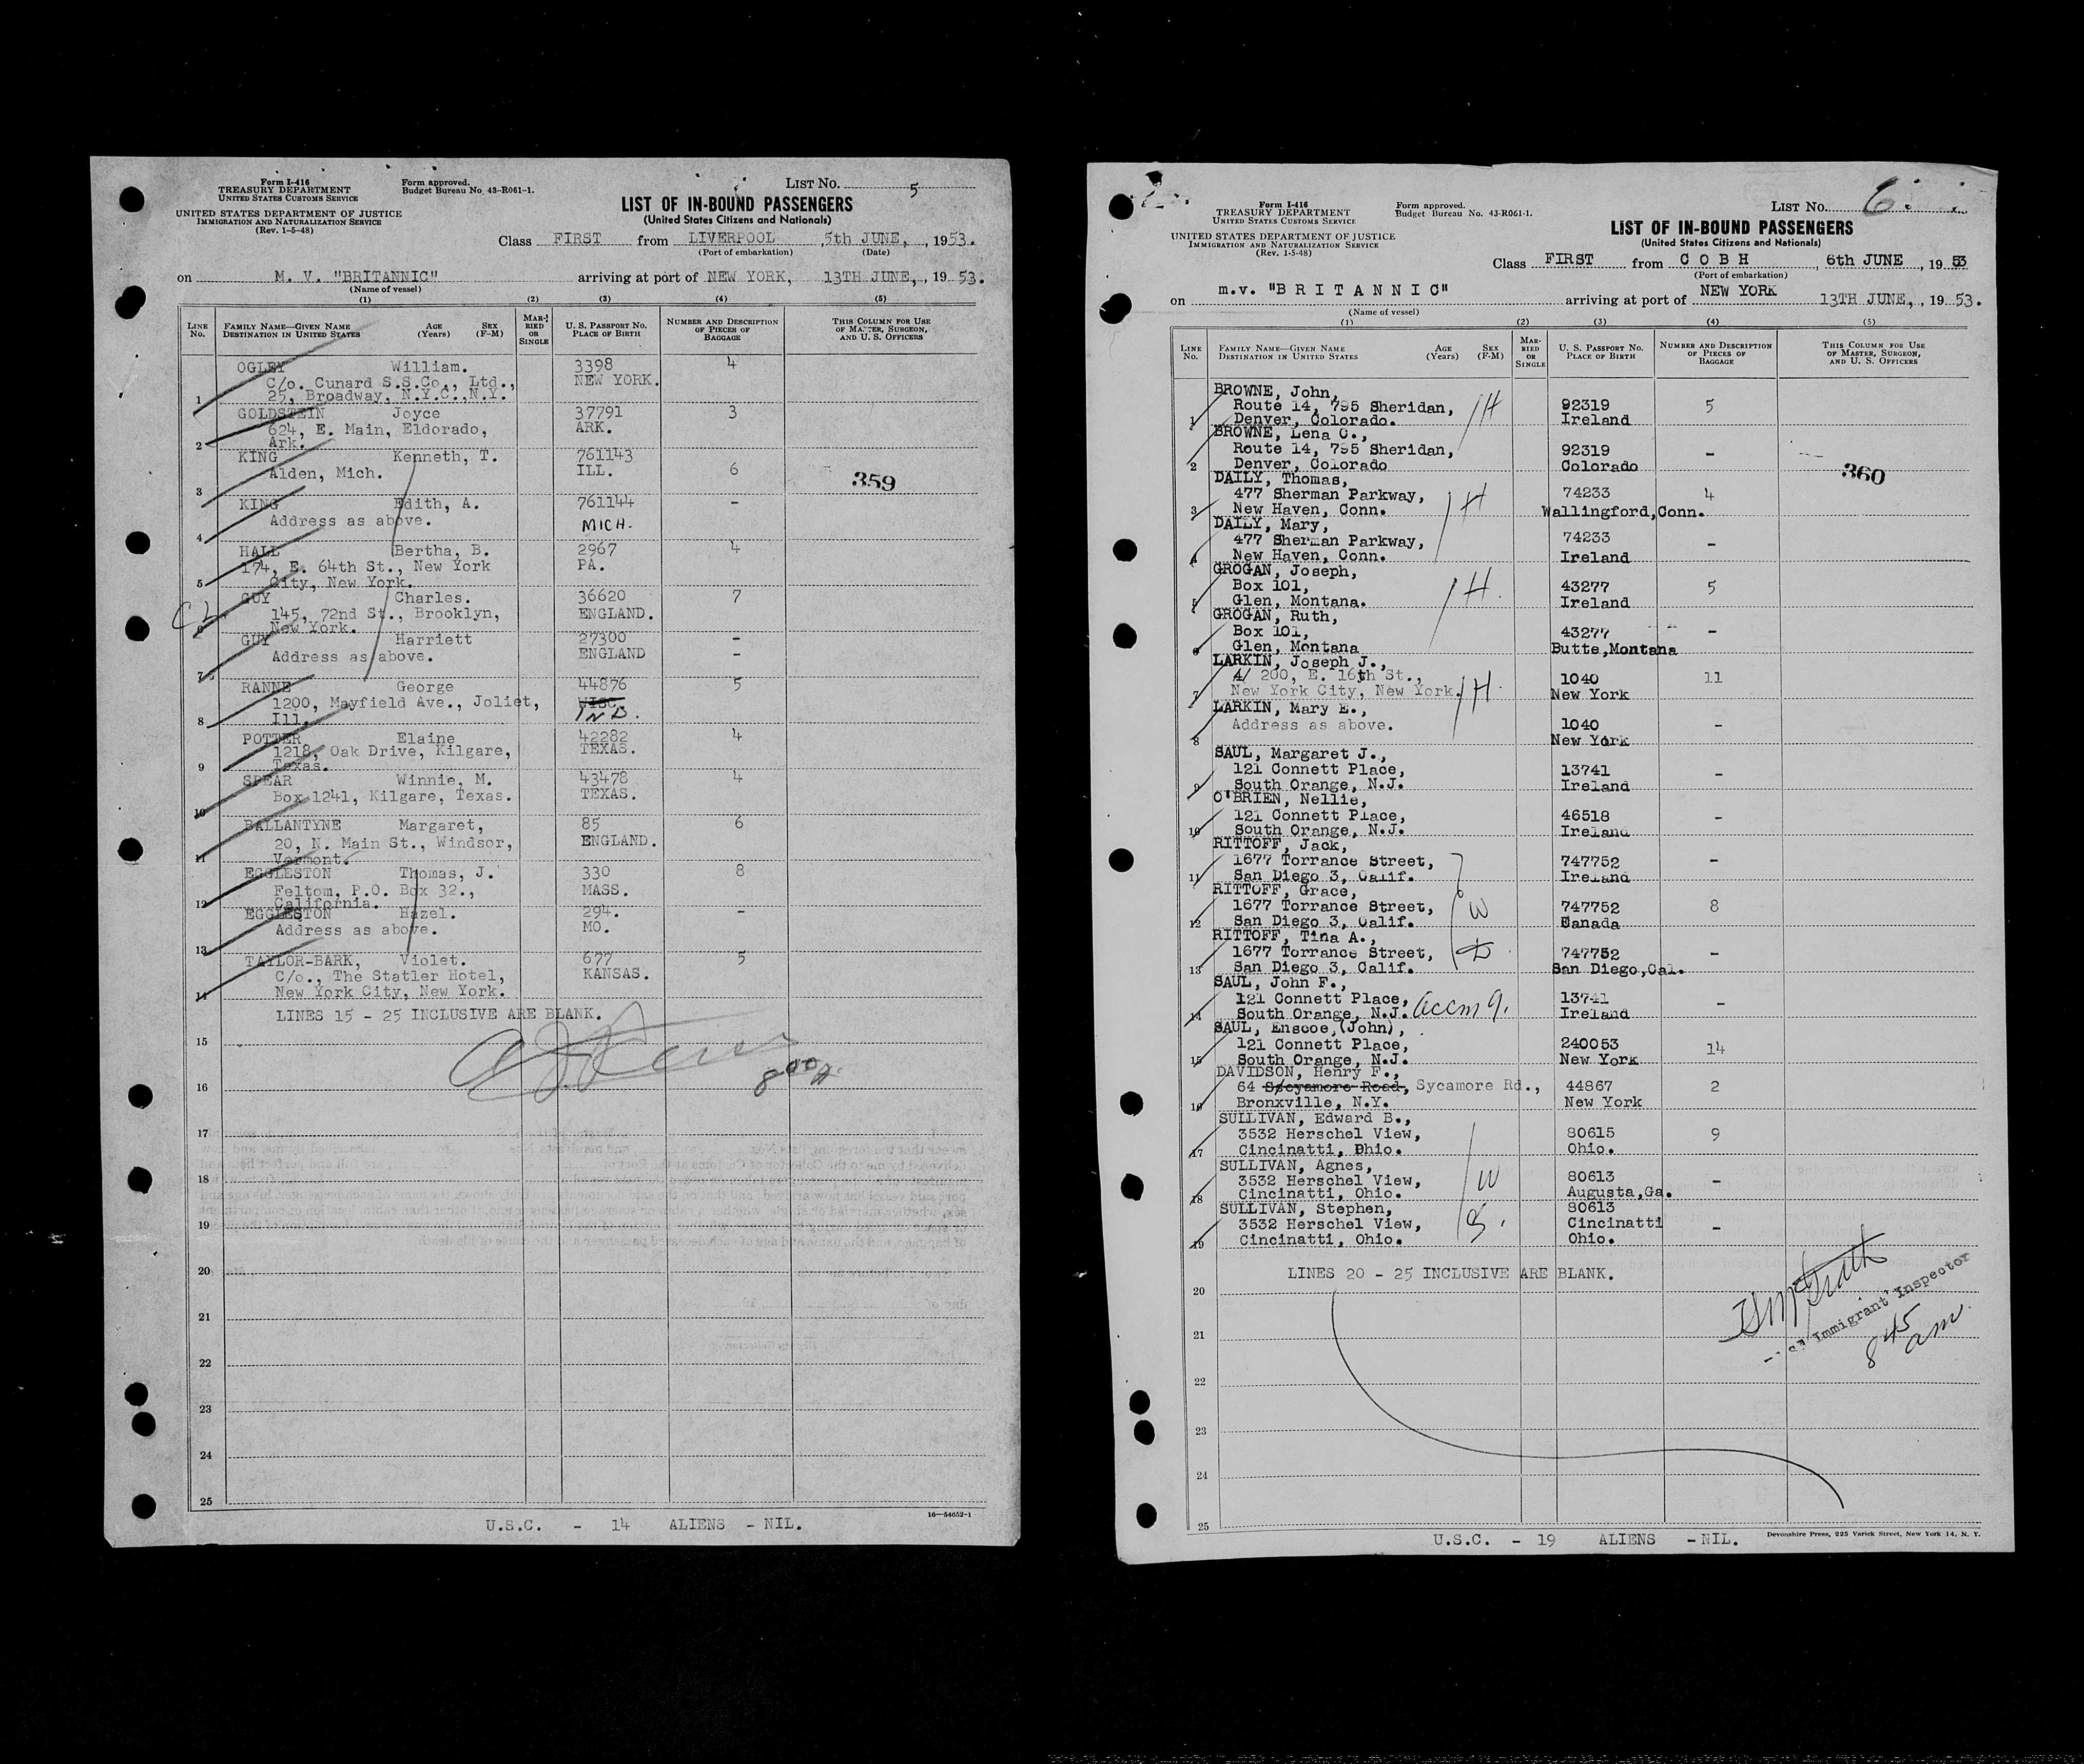 Form I-416
TREASURY DEPARTMENT
UNITED STATES CUSTOMS SERVICE
UNITED STATES DEPARTMENT OF JUSTICE
IMMIGRATION AND NATURALIZATION SERVICE
(Rev. 1-5-48)
Form approved.
Budget Bureau No. 43-R061-1.
LIST NO. 5
LIST OF IN-BOUND PASSENGERS
(United States Citizens and Nationals)
Class FIRST from LIVERPOOL , 5th JUNE, , 1953.
(Port of embarkation) (Date)
on M. V. "BRITANNIC" arriving at port of NEW YORK, 13TH JUNE, , 19 53.
(Name of vessel)
(1) (2) (3) (4) (5)
LINE No. FAMILY NAME—GIVEN NAME DESTINATION IN UNITED STATES AGE (Years) SEX (F-M) MARRIED OR SINGLE U. S. PASSPORT NO. PLACE OF BIRTH NUMBER AND DESCRIPTION OF PIECES OF BAGGAGE THIS COLUMN FOR USE OF MASTER, SURGEON, AND U. S. OFFICERS
OGLEY William. 3398 4
C/o. Cunard S.S.Co., Ltd., NEW YORK.
1 25, Broadway, N.Y.C.,N.Y.
GOLDSTEIN Joyce 37791 3
624, E. Main, Eldorado, ARK.
2 Ark.
KING Kenneth, T. 761143
Alden, Mich. ILL. 6
359
3
KING Edith, A. 761144 -
Address as above. MICH.
4
HALL Bertha, B. 2967 4
174, E. 64th St., New York PA.
5 City, New York.
GUY Charles. 36620 7
145, 72nd St., Brooklyn, ENGLAND.
6 New York.
GUY Harriett 27300 -
Address as above. ENGLAND -
7
RANNE George 44876 5
1200, Mayfield Ave., Joliet, WISC.
8 Ill. IND.
POTTER Elaine 42282 4
1218, Oak Drive, Kilgare, TEXAS.
9 Texas.
SPEAR Winnie, M. 43478 4
Box 1241, Kilgare, Texas. TEXAS.
10
BALLANTYNE Margaret, 85 6
20, N. Main St., Windsor, ENGLAND.
11 Vermont.
EGGLESTON Thomas, J. 330 8
Feltom, P.O. Box 32., MASS.
12 California.
EGGLESTON Hazel. 294. -
Address as above. MO.
13
TAYLOR-BARK, Violet. 677 5
C/o., The Statler Hotel, KANSAS.
14 New York City, New York.
LINES 15 - 25 INCLUSIVE ARE BLANK.
15
16
17
18
19
20
21
22
23
24
25
16—54652-1
U.S.C. - 14 ALIENS - NIL.
Form I-416
TREASURY DEPARTMENT
UNITED STATES CUSTOMS SERVICE
UNITED STATES DEPARTMENT OF JUSTICE
IMMIGRATION AND NATURALIZATION SERVICE
(Rev. 1-5-48)
Form approved.
Budget Bureau No. 43-R061-1.
LIST NO. 6
LIST OF IN-BOUND PASSENGERS
(United States Citizens and Nationals)
Class FIRST from C O B H , 6th JUNE , 19 53
(Port of embarkation)
on m.v. "B R I T A N N I C" arriving at port of NEW YORK 13TH JUNE, , 19 53.
(Name of vessel)
(1) (2) (3) (4) (5)
LINE No. FAMILY NAME—GIVEN NAME DESTINATION IN UNITED STATES AGE (Years) SEX (F-M) MARRIED OR SINGLE U. S. PASSPORT NO. PLACE OF BIRTH NUMBER AND DESCRIPTION OF PIECES OF BAGGAGE THIS COLUMN FOR USE OF MASTER, SURGEON, AND U. S. OFFICERS
BROWNE, John,
Route 14, 795 Sheridan, H 92319 5
1 Denver, Colorado. Ireland
BROWNE, Lena C.,
Route 14, 795 Sheridan, 92319 -
2 Denver, Colorado Colorado
360
DAILY, Thomas,
477 Sherman Parkway, H 74233 4
3 New Haven, Conn. Wallingford,Conn.
DAILY, Mary,
477 Sherman Parkway, 74233 -
4 New Haven, Conn. Ireland
GROGAN, Joseph,
Box 101, H. 43277 5
5 Glen, Montana. Ireland
GROGAN, Ruth,
Box 101, 43277 -
6 Glen, Montana Butte,Montana
LARKIN, Joseph J.,
200, E. 16th St., 1040 11
7 New York City, New York. H. New York
LARKIN, Mary E.,
Address as above. 1040 -
8 New York
SAUL, Margaret J.,
121 Connett Place, 13741 -
9 South Orange, N.J. Ireland
O'BRIEN, Nellie,
121 Connett Place, 46518 -
10 South Orange, N.J. Ireland
RITTOFF, Jack,
1677 Torrance Street, 747752 -
11 San Diego 3, Calif. Ireland
RITTOFF, Grace,
1677 Torrance Street, W 747752 8
12 San Diego 3, Calif. Canada
RITTOFF, Tina A.,
1677 Torrance Street, D 747752 -
13 San Diego 3, Calif. San Diego,Cal.
SAUL, John F.,
121 Connett Place, 13741 -
14 South Orange, N.J. Ireland
SAUL, Enscoe,(John),
121 Connett Place, 240053 14
15 South Orange, N.J. New York
DAVIDSON, Henry F.,
64 Sycamore Rd., 44867 2
16 Bronxville, N.Y. New York
SULLIVAN, Edward B.,
3532 Herschel View, 80615 9
17 Cincinatti, Ohio. Ohio.
SULLIVAN, Agnes,
3532 Herschel View, W 80613 -
18 Cincinatti, Ohio. Augusta,Ga.
SULLIVAN, Stephen, 80613
3532 Herschel View, S. Cincinatti -
19 Cincinatti, Ohio. Ohio.
LINES 20 - 25 INCLUSIVE ARE BLANK.
20
Immigrant Inspector
845
am
21
22
23
24
25
Devonshire Press, 225 Varick Street, New York 14, N. Y.
U.S.C. - 19 ALIENS - NIL.